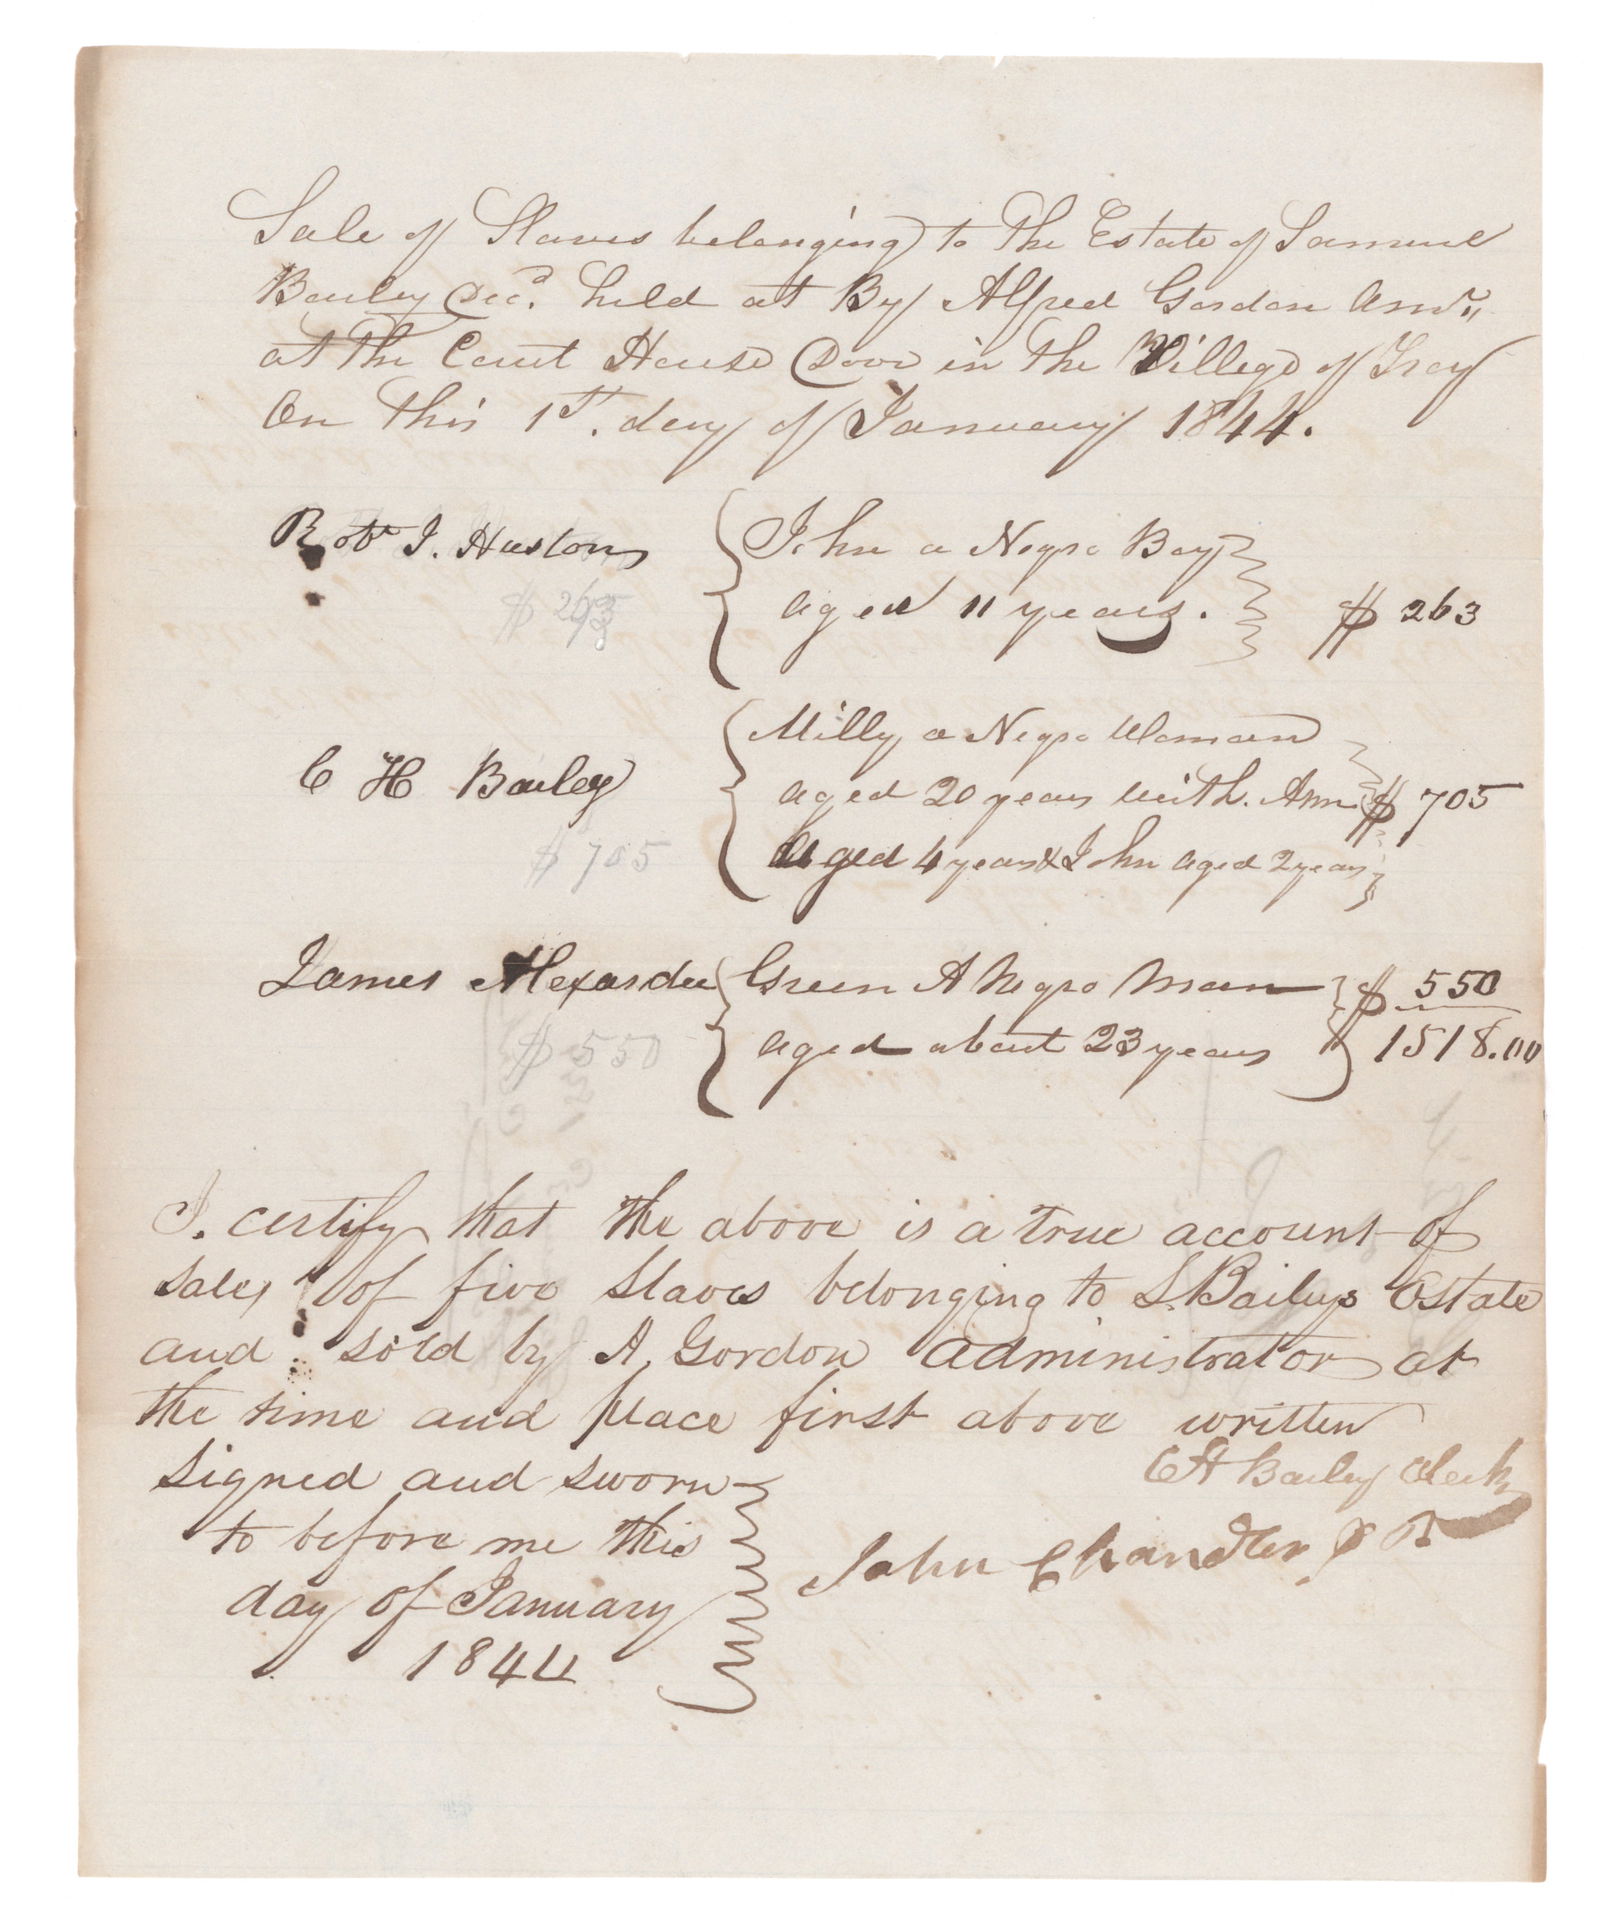 Sale of Slaves belonging to The Estate of Samuel
Bailey Decd. held at By Alfred Gordon Amdr.
at The Court House Door in The Village of Troy
On This 1st. day of January 1844.
Robt J. Huston { John a Negro Boy
$ 263 aged 11 years. } $ 263
C H Bailey { Milly a Negro Woman
aged 20 years with. Ann $ 705
$ 705 Aged 4 years & John aged 2 years
James Alexander { Green A Negro Man } $ 550
$ 550 aged about 23 years 1518.00
I. certify that the above is a true account of
sales of five Slaves belonging to S. Baileys Estate
and sold by A. Gordon administrator at
the time and place first above written
signed and sworn C H Bailey Clerk
to before me this
John Chandler J P
day of January
1844